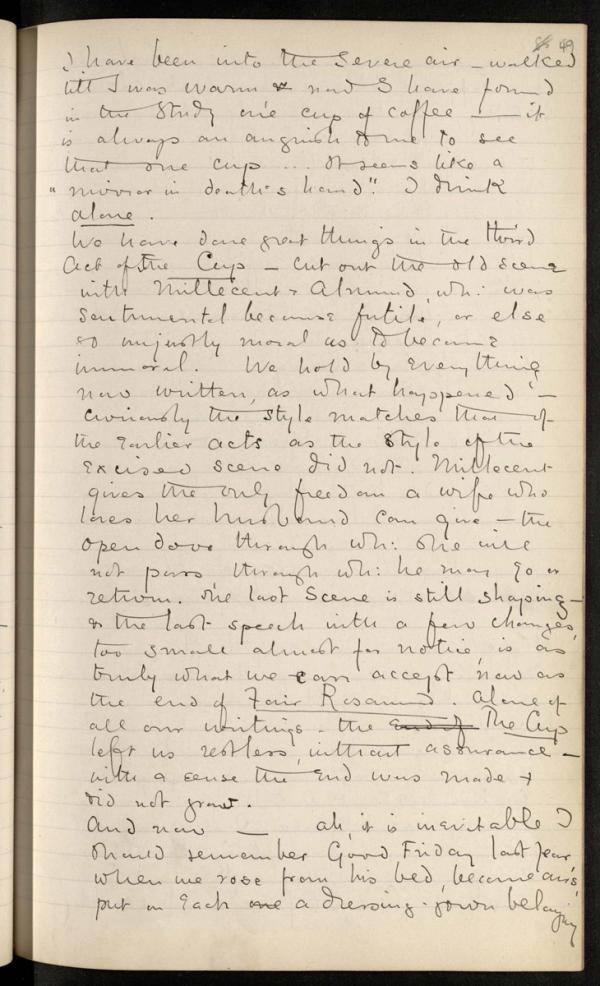 49
I have been into the severe air – walked
till I was warm & now I have found
in the Study one cup of coffee — it
is always an anguish to me to see
that one cup ... It seems like a
"mirror in death's hand". I drink
alone.
We have done great things in the third
Act of the Cup – cut out the old scene
with Millecent & Almund, wh: was
sentimental because futile, or else
so unjustly moral as to become
immoral. We hold by everything
now written, as what happened –
curiously the style matches that of
the earlier acts as the style of the
excised scene did not. Millecent
gives the only freedom a wife who
loves her husband can give – the
open door through wh: she will
not pass, through wh: he may go or
return. The last Scene is still shaping –
& the last speech with a few changes,
too small almost for notice, is as
truly what we can accept now as
the end of Fair Rosamund. Alone of
all our writings – the End of The Cup
left us restless, without assurance –
with a sense the end was made &
did not grow.
And now — ah, it is inevitable I
should remember Good Friday last year
when we rose from his bed, became airs,
put on each one a dressing-gown belonging